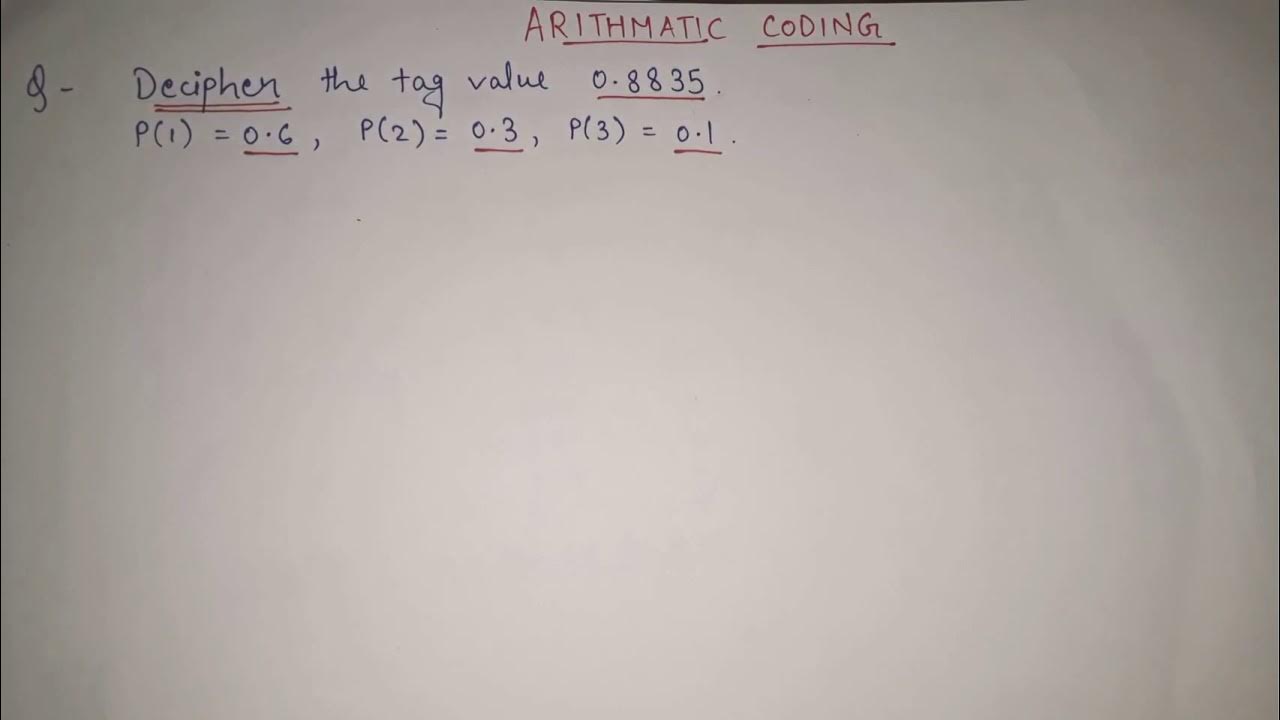 ARITHMATIC CODING
Q - Decipher the tag value 0.8835.
P(1) = 0.6, P(2) = 0.3, P(3) = 0.1.